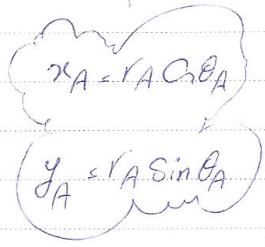 x_A = r_A Cos θ_A
y_A = r_A Sin θ_A